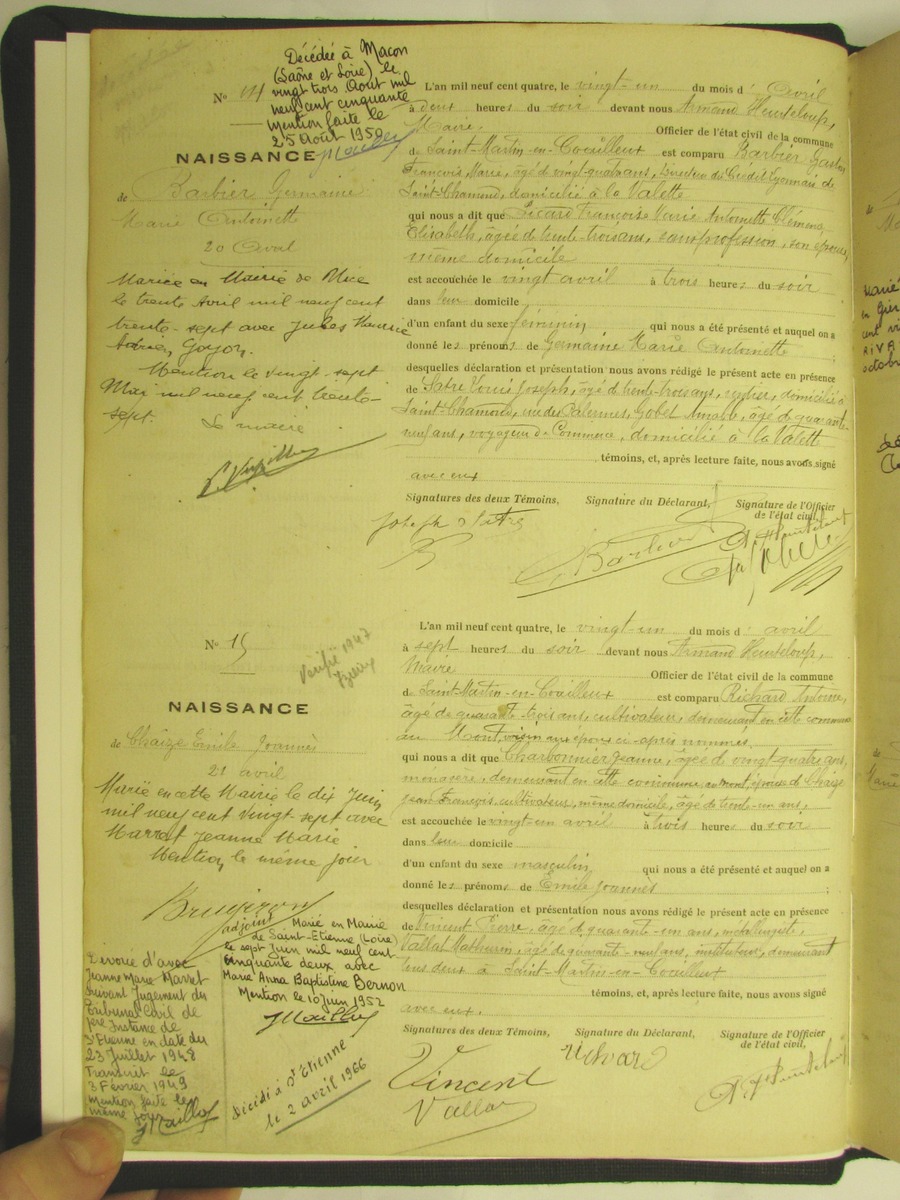 Décédée à Macon
(Saône et Loire) le
vingt trois Aout mil
neuf cent cinquante
mention faite le
25 Août 1950
N° 14
NAISSANCE
de Barbier Germaine
Marie Antoinette
20 Avril
Mariée en Mairie de Nice
le trente Avril mil neuf cent
trente-sept avec Jules Maurice
Adrien Goyon.
Mention le vingt-sept
Mai mil neuf cent trente-
sept. Le maire
L'an mil neuf cent quatre, le vingt-un du mois d' Avril
à deux heures du soir devant nous Armand Heurteloup,
Maire, Officier de l'état civil de la commune
de Saint-Martin-en-Coailleux est comparu Barbier Gaston
François Marie, âgé de vingt-quatre ans, Directeur du Crédit Lyonnais de
Saint-Chamond, domicilié à la Valette
qui nous a dit que Ricard Françoise Marie Antoinette Clémence
Elisabeth, âgée de trente-trois ans, sans profession, son épouse,
même domicile
est accouchée le vingt avril à trois heures du soir
dans leur domicile
d'un enfant du sexe féminin qui nous a été présenté et auquel on a
donné les prénoms de Germaine Marie Antoinette ;
desquelles déclaration et présentation nous avons rédigé le présent acte en présence
de Satre Louis Joseph, âgé de trente-trois ans, rentier, domicilié à
Saint-Chamond, rue des Palermes, Gobet Amable, âgé de quarante-
neuf ans, voyageur de Commerce, domicilié à la Valette
témoins, et, après lecture faite, nous avons signé
avec eux
Signatures des deux Témoins, Signature du Déclarant, Signature de l'Officier
de l'état civil,
Joseph Satre
Barbier
A. Heurteloup
N° 15
Vérifié 1947
NAISSANCE
de Chaize Emile Joannès
21 avril
Marié en cette Mairie le dix Juin
mil neuf cent vingt-sept avec
Marrat Jeanne Marie
Mention le même jour
adjoint
Marié en Mairie
de Saint-Etienne (Loire)
le sept Juin mil neuf cent
cinquante deux avec
Marie Anna Baptistine Bernon
Mention le 10 juin 1952
Divorcé d'avec
Jeanne Marie Marrat
suivant Jugement du
Tribunal Civil de
1ère Instance de
St Etienne en date du
23 Juillet 1948
Transcrit le
3 Février 1949
mention faite le
même jour
Décédé à St Etienne
le 2 avril 1966
L'an mil neuf cent quatre, le vingt-un du mois d' avril
à sept heures du soir devant nous Armand Heurteloup,
Maire Officier de l'état civil de la commune
de Saint-Martin-en-Coailleux est comparu Richard Antoine,
âgé de quarante-trois ans, cultivateur, demeurant en cette commune
au Mont, voisin aux époux ci-après nommés.
qui nous a dit que Charbonnier Jeanne, âgée de vingt-quatre ans,
ménagère, demeurant en cette commune, au Mont, épouse de Chaize
Jean François, cultivateur, même domicile, âgé de trente-un ans,
est accouchée le vingt-un avril à trois heures du soir
dans leur domicile
d'un enfant du sexe masculin qui nous a été présenté et auquel on a
donné les prénoms de Emile Joannès ;
desquelles déclaration et présentation nous avons rédigé le présent acte en présence
de Vincent Pierre, âgé de quarante-un ans, métallurgiste,
Vallat Mathurin, âgé de quarante-neuf ans, instituteur, demeurant
tous deux à Saint-Martin-en-Coailleux
témoins, et, après lecture faite, nous avons signé
avec eux.
Signatures des deux Témoins, Signature du Déclarant, Signature de l'Officier
de l'état civil,
Vincent
Vallat
Richard
A. Heurteloup